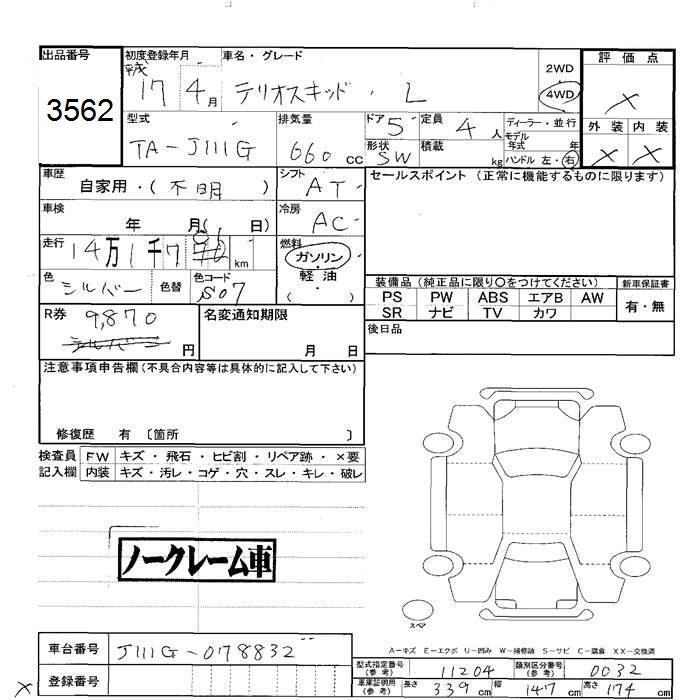 出品番号
3562
初度登録年月
平成
17 4月
車名・グレード
テリオスキッド・L
2WD
4WD
評価点
X
外装 内装
X X
型式
TA-J111G
排気量
660 cc
ドア 5
形状 SW
定員 4 人
積載 kg
ディーラー・並行
モデル
年式 年
ハンドル 左・右
車歴
自家用・(不明)
シフト
AT
セールスポイント (正常に機能するものに限ります)
車検
年 月( 日)
冷房
AC
走行
14万1千7 km
燃料
ガソリン
軽油
( )
色
シルバー
色替
色コード
S07
装備品 (純正品に限り〇をつけてください)
新車保証書
PS PW ABS エアB AW
SR ナビ TV カワ
有・無
R券
9,870
円
名変通知期限
月 日
後日品
注意事項申告欄(不具合内容等は具体的に記入して下さい)
修復歴 有 〔箇所 〕
検査員 FW キズ・飛石・ヒビ割・リペア跡・×要
記入欄 内装 キズ・汚レ・コゲ・穴・スレ・キレ・破レ
ノークレーム車
スペア
A-キズ E-エクボ U-凹み W-補修跡 S-サビ C-腐食 XX-交換済
車台番号
J111G-078832
登録番号
X
型式指定番号
(参考)
11204
類別区分番号
(参考)
0032
車庫証明用
(参考)
長さ 339 cm 幅 147 cm 高さ 174 cm